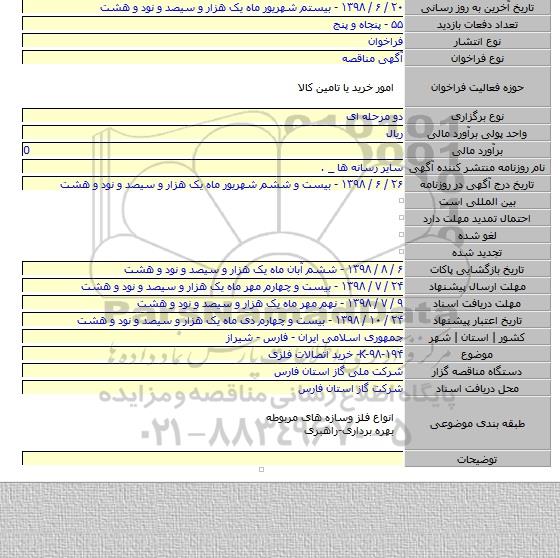 تاریخ آخرین به روز رسانی ۲۰ / ۶ / ۱۳۹۸ - بیستم شهریور ماه یک هزار و سیصد و نود و هشت
تعداد دفعات بازدید ۵۵ - پنجاه و پنج
نوع انتشار فراخوان
نوع فراخوان آگهی مناقصه
حوزه فعالیت فراخوان امور خرید یا تامین کالا
نوع برگزاری دو مرحله ای
واحد پولی برآورد مالی ریال
برآورد مالی 0
نام روزنامه منتشر کننده آگهی سایر رسانه ها _ .
تاریخ درج آگهی در روزنامه ۲۶ / ۶ / ۱۳۹۸ - بیست و ششم شهریور ماه یک هزار و سیصد و نود و هشت
بین المللی است
احتمال تمدید مهلت دارد
لغو شده
تجدید شده
تاریخ بازگشایی پاکات ۶ / ۸ / ۱۳۹۸ - ششم ابان ماه یک هزار و سیصد و نود و هشت
مهلت ارسال پیشنهاد ۲۴ / ۷ / ۱۳۹۸ - بیست و چهارم مهر ماه یک هزار و سیصد و نود و هشت
مهلت دریافت اسناد ۹ / ۷ / ۱۳۹۸ - نهم مهر ماه یک هزار و سیصد و نود و هشت
تاریخ اعتبار پیشنهاد ۲۴ / ۱۰ / ۱۳۹۸ - بیست و چهارم دی ماه یک هزار و سیصد و نود و هشت
کشور | استان | شهر جمهوری اسلامی ایران - فارس - شیراز
موضوع K-۹۸-۱۹۴- خرید اتصالات فلزی
دستگاه مناقصه گزار شرکت ملی گاز استان فارس
محل دریافت اسناد شرکت گاز استان فارس
طبقه بندی موضوعی انواع فلز وسازه های مربوطه
بهره برداری-راهبری
توضیحات
پایگاه اطلاع رسانی مناقصه و مزایده
۰۲۱-۸۸۳۴۹۶۷۰-۵